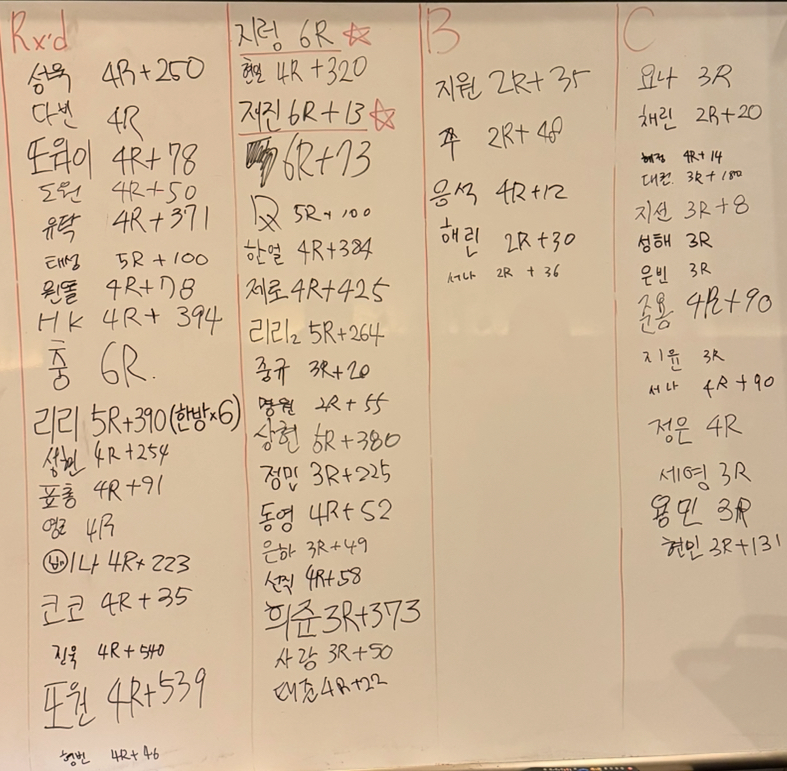 Rx'd
성욱 4R+250
다빈 4R
또위이 4R+78
도원 4R+50
유탁 4R+371
태성 5R+100
원똘 4R+78
HK 4R+394
충 6R.
리리 5R+390(한방x6)
성현 4R+254
표통 4R+91
영로 4R
이나 4R+223
코코 4R+35
진욱 4R+540
또원 4R+539
형빈 4R+46
지령 6R
현일 4R+320
재진 6R+13
6R+73
5R+100
한얼 4R+384
제로 4R+425
리리2 5R+264
중규 3R+20
명월 2R+55
상현 6R+380
정민 3R+225
동영 4R+52
은하 3R+49
선직 4R+58
희준 3R+373
사랑 3R+50
대준 4R+22
B
지원 2R+35
쭈 2R+48
음석 4R+12
해린 2R+30
서나 2R+36
C
요나 3R
채린 2R+20
혜정 4R+14
대권 3R+180
지선 3R+8
성해 3R
은빈 3R
준용 4R+90
지윤 3R
서나 4R+90
정은 4R
세영 3R
용민 3R
현민 3R+131